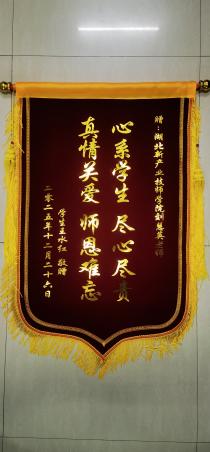 赠：湖北新产业技师学院刘慧英老师
心系学生 尽心尽责
真情关爱 师恩难忘
学生王水红 敬赠
二零二五年十二月二十六日